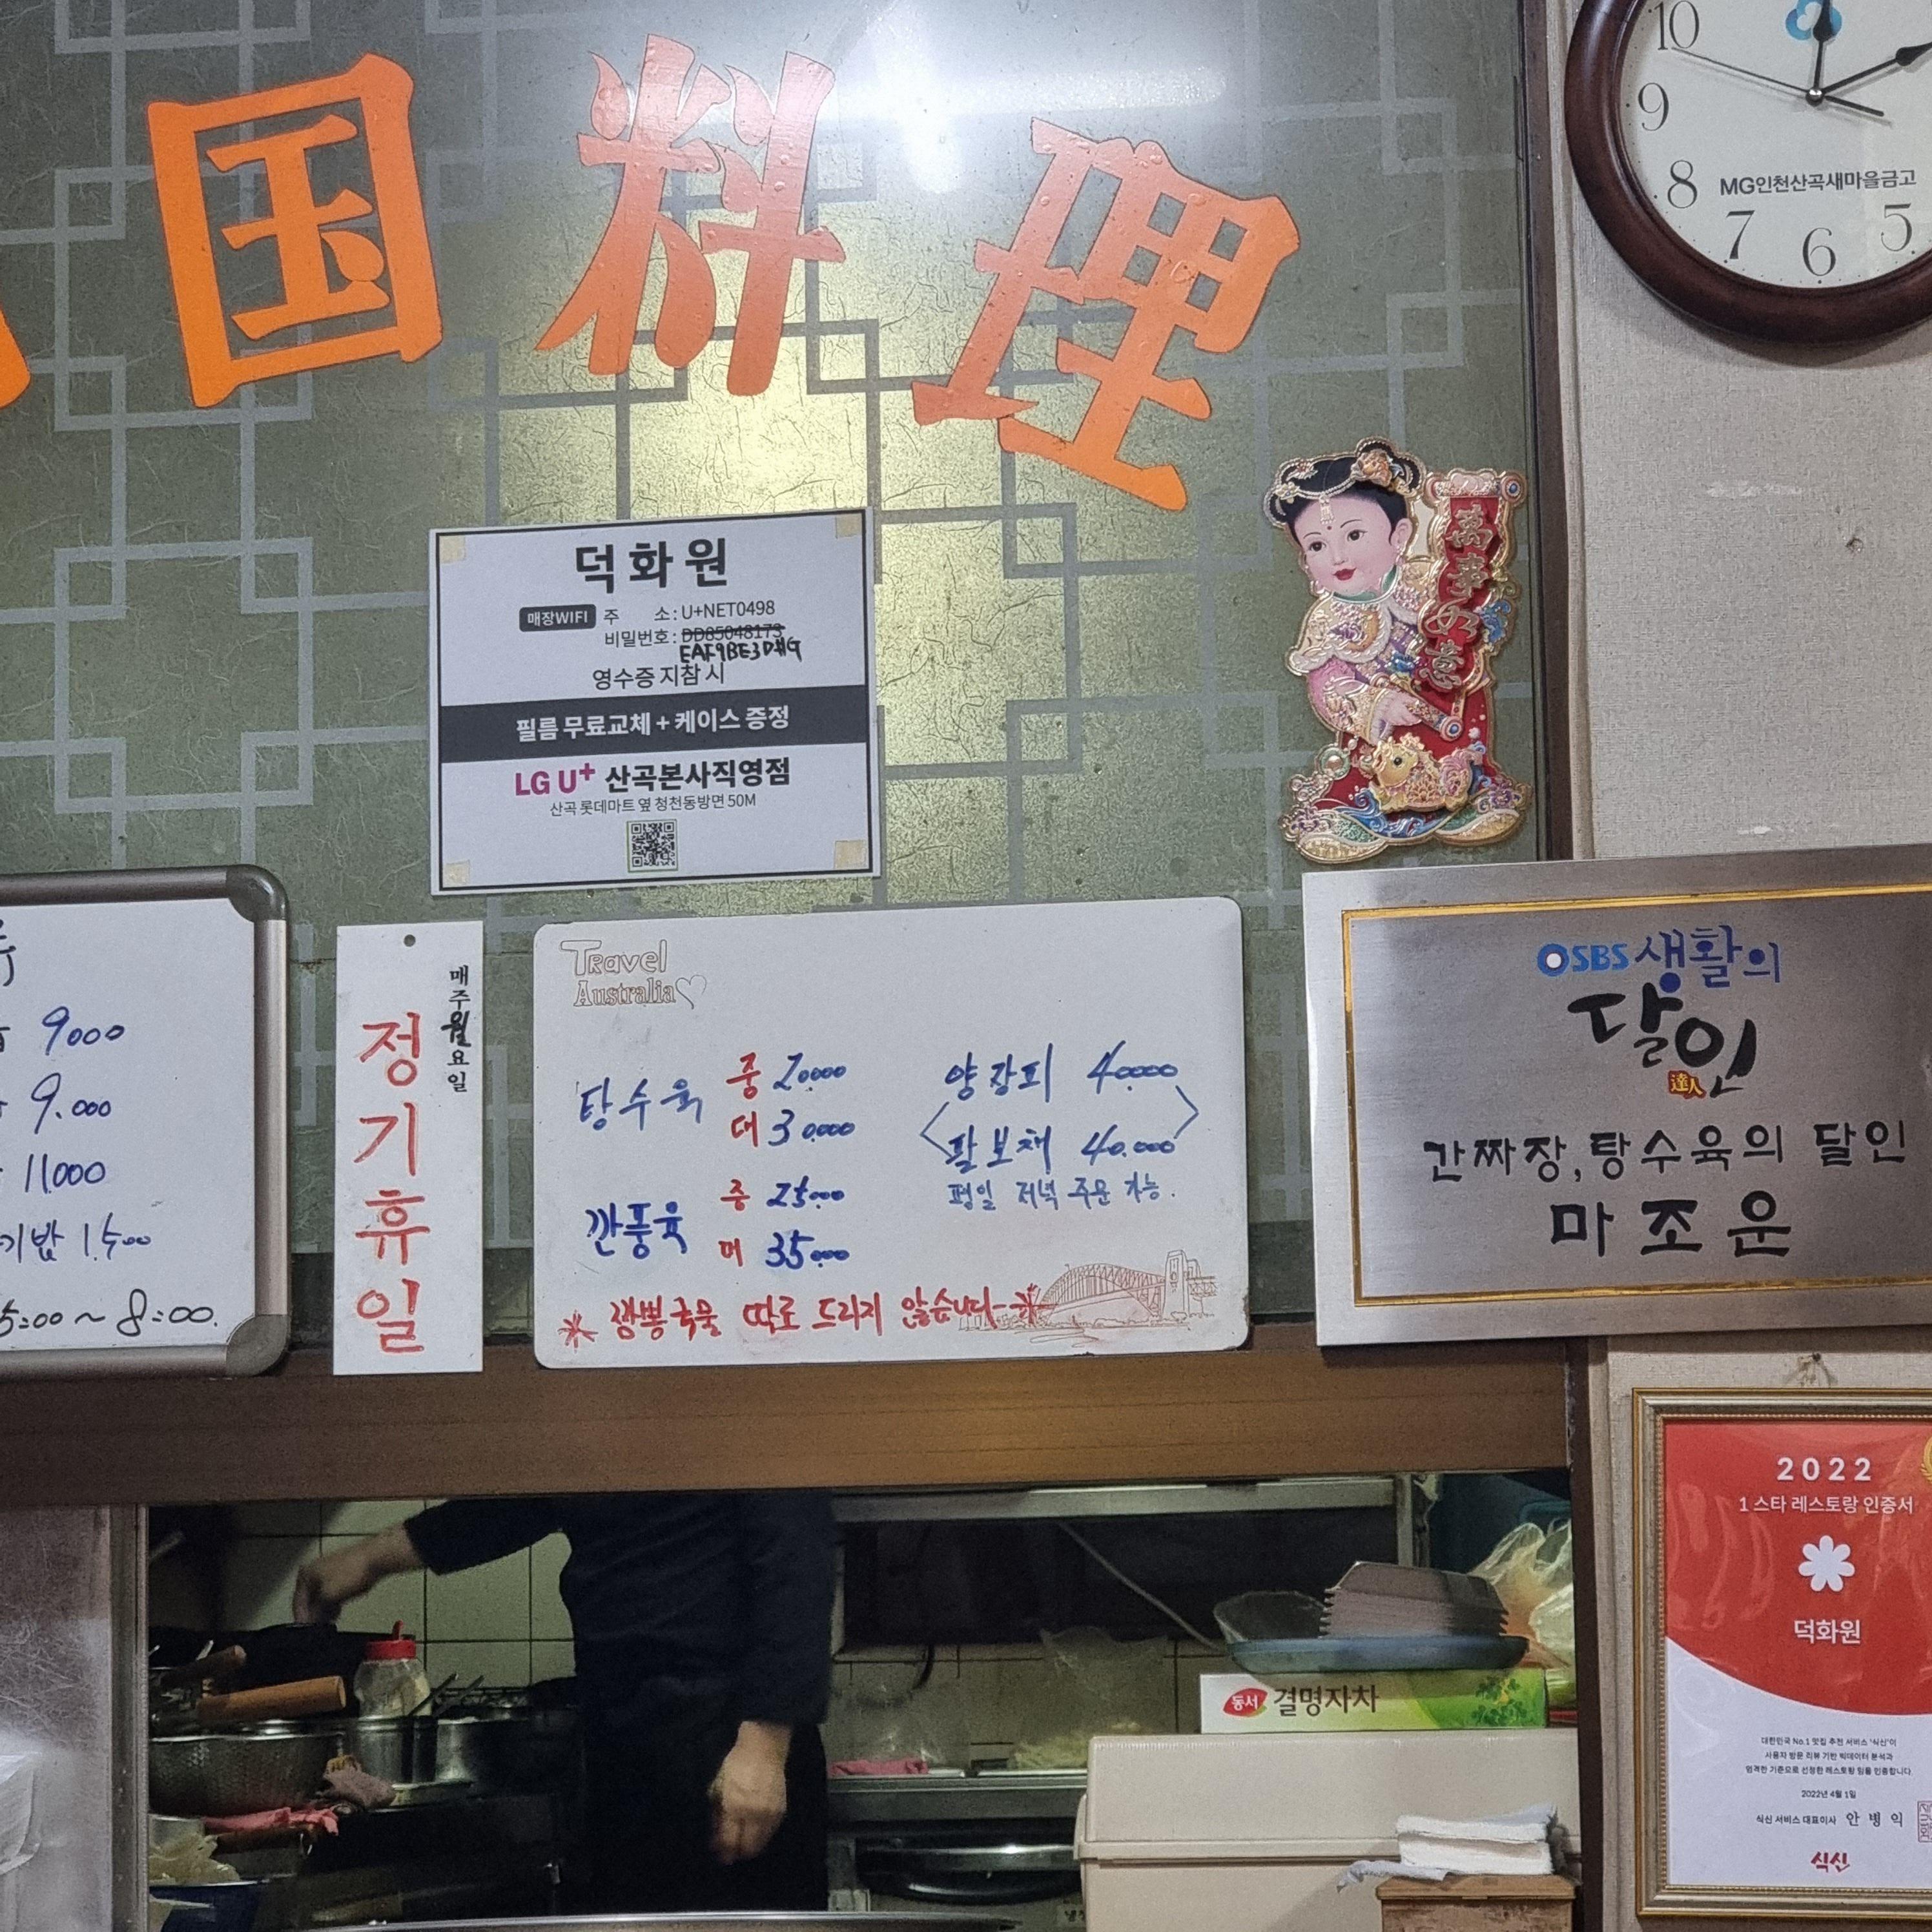 国料理
10
9
8
7
6
5
MG인천산곡새마을금고
萬事如意
덕화원
매장WIFI 주 소 : U+NET0498
비밀번호 : DD85048173
영수증 지참 시
필름 무료교체 + 케이스 증정
LG U+ 산곡본사직영점
산곡 롯데마트 옆 청천동방면 50M
9000
9.000
11000
기밥 1.500
5:00 ~ 8:00.
매주월요일
정기휴일
Travel
Australia
탕수육 중 20000
대 30000
깐풍육 중 25000
대 35000
양장피 40000
팔보채 40.000
평일 저녁 주문 가능.
짬뽕국물 따로 드리지 않습니다
SBS 생활의
달인
達人
간짜장, 탕수육의 달인
마조운
2022
1 스타 레스토랑 인증서
덕화원
대한민국 No.1 맛집 추천 서비스 '식신'이
사용자 방문 리뷰 기반 빅데이터 분석과
엄격한 기준으로 선정한 레스토랑 임을 인증합니다.
2022년 4월 1일
식신 서비스 대표이사 안병익
식신
동서 결명자차